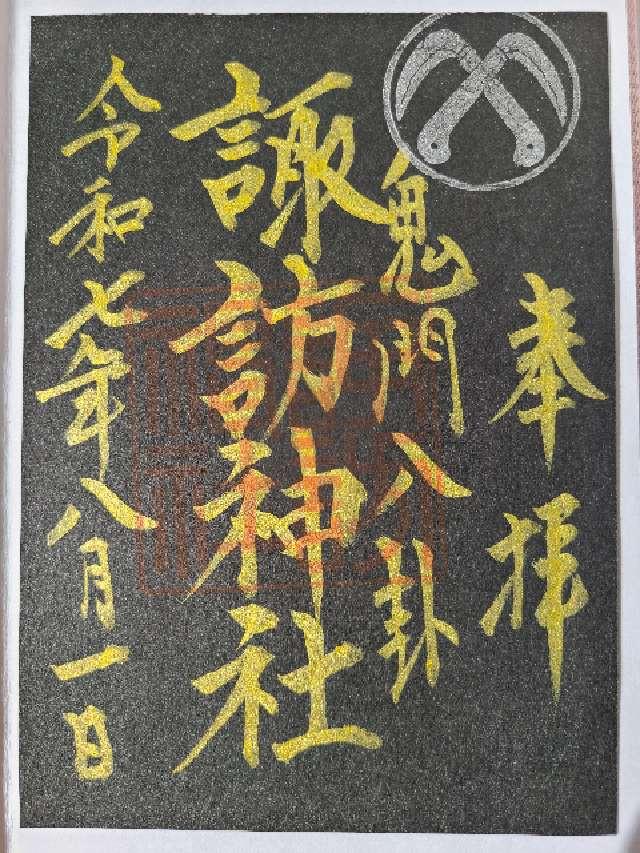 奉拝
鬼門八卦
諏訪神社
令和七年八月一日